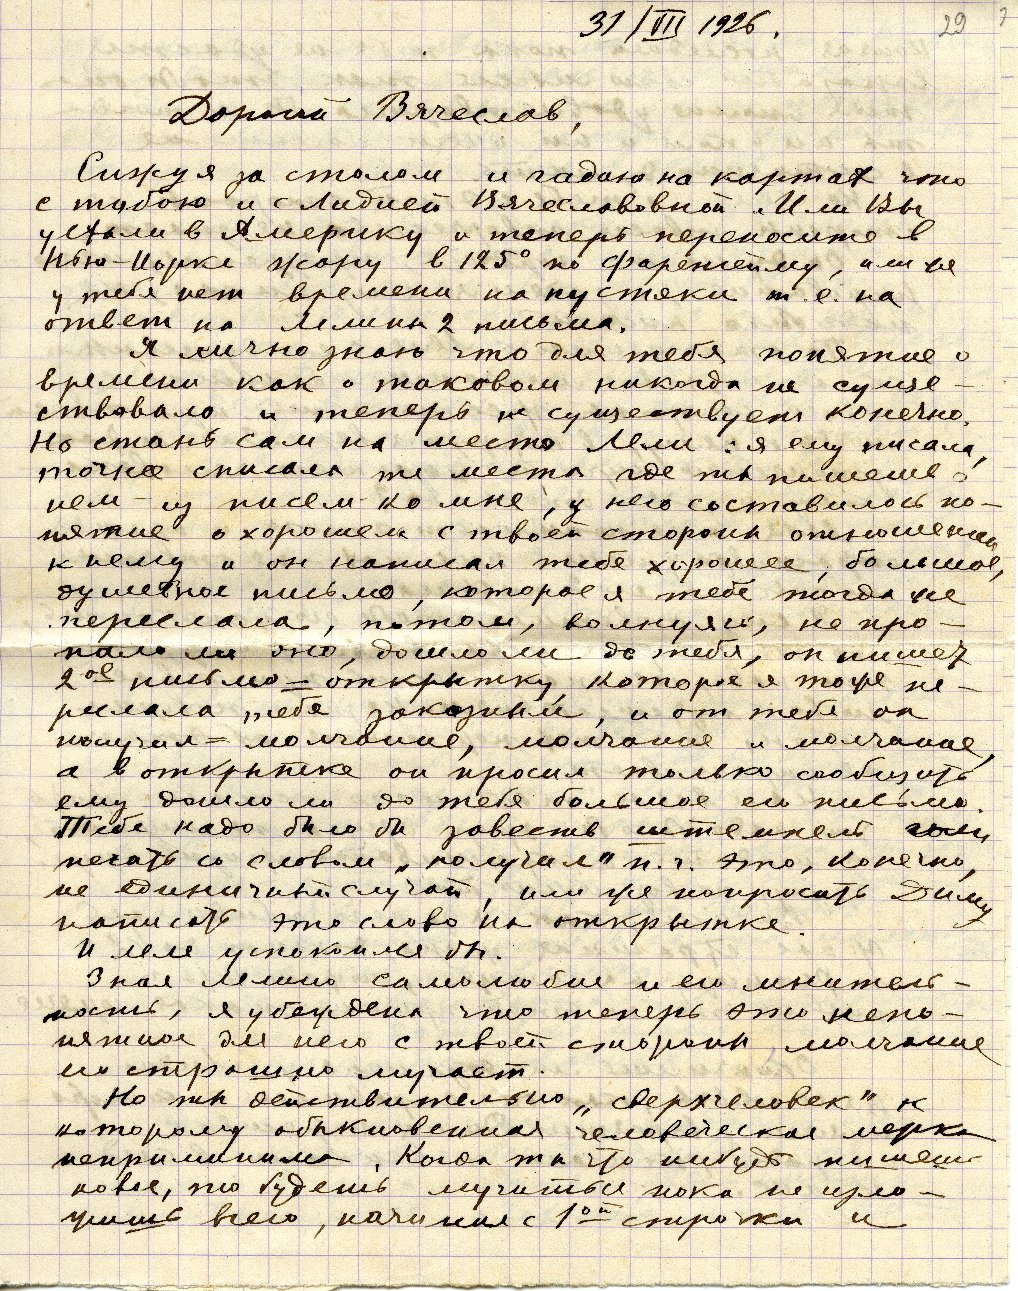 31/VII 1926.
29
Дорогой Вячеслав,
Сижу я за столом и гадаю на картах что
с тобою и с Лидией Вячеславовной. Или Вы
уехали в Америку и теперь переносите в
Нью-Иорке жару в 125° по Фаренгейту, или же
у тебя нет времени на пустяки т.е. на
ответ на Лелины 2 письма.
Я лично знаю что для тебя понятие о
времени как о таковом никогда не суще-
ствовало и теперь не существует конечно.
Но стань сам на место Лели: я ему писала,
точнее списала те места где ты пишешь о
нем - из писем ко мне; у него составилось по-
нятие о хорошем с твоей стороны отношении
к нему и он написал тебе хорошее, большое,
душевное письмо, которое я тебе тогда же
переслала, потом, волнуясь, не про-
пало ли оно, дошло ли до тебя, он пишет
2ое письмо = открытку, которое я тоже пе-
реслала тебе заказным, и от тебя он
получил = молчание, молчание и молчание,
а в открытке он просил только сообщить
ему дошло ли до тебя большое его письмо.
Тебе надо было бы завести штемпель или
печать со словом „получил" п.ч. это, конечно,
не единичный случай, или же попросить Диму
написать это слово на открытке.
И Леля успокоился бы.
Зная Лелино самолюбие и его мнитель-
ность, я убеждена что теперь это непо-
нятное для него с твоей стороны молчание
его страшно мучает.
Но ты действительно „сверхчеловек" к
которому обыкновенная человеческая мерка
неприменима. Когда ты что нибудь пишешь
новое, то будешь мучиться пока не изло-
жишь всего, начиная с 1ой строчки и